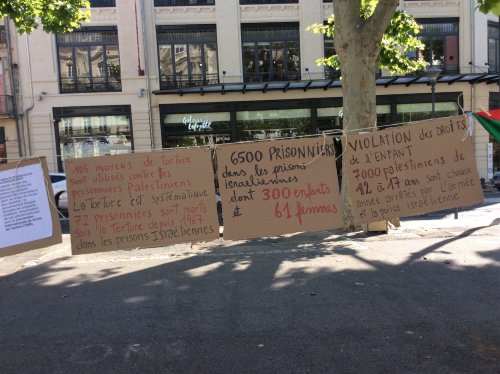 Galeries Lafayette
105 moyens de torture
sont utilisés contre les
prisonniers palestiniens
La torture est systématique
72 prisonniers sont morts
sous la torture depuis 1967
dans les prisons Israéliennes
6500 PRISONNIERS
dans les prisons
israéliennes
dont 300 enfants
et 61 femmes
VIOLATION des DROITS
de L'ENFANT
7000 palestiniens de
12 à 17 ans sont chaque
année arrêtés par l'armée
et la police israélienne